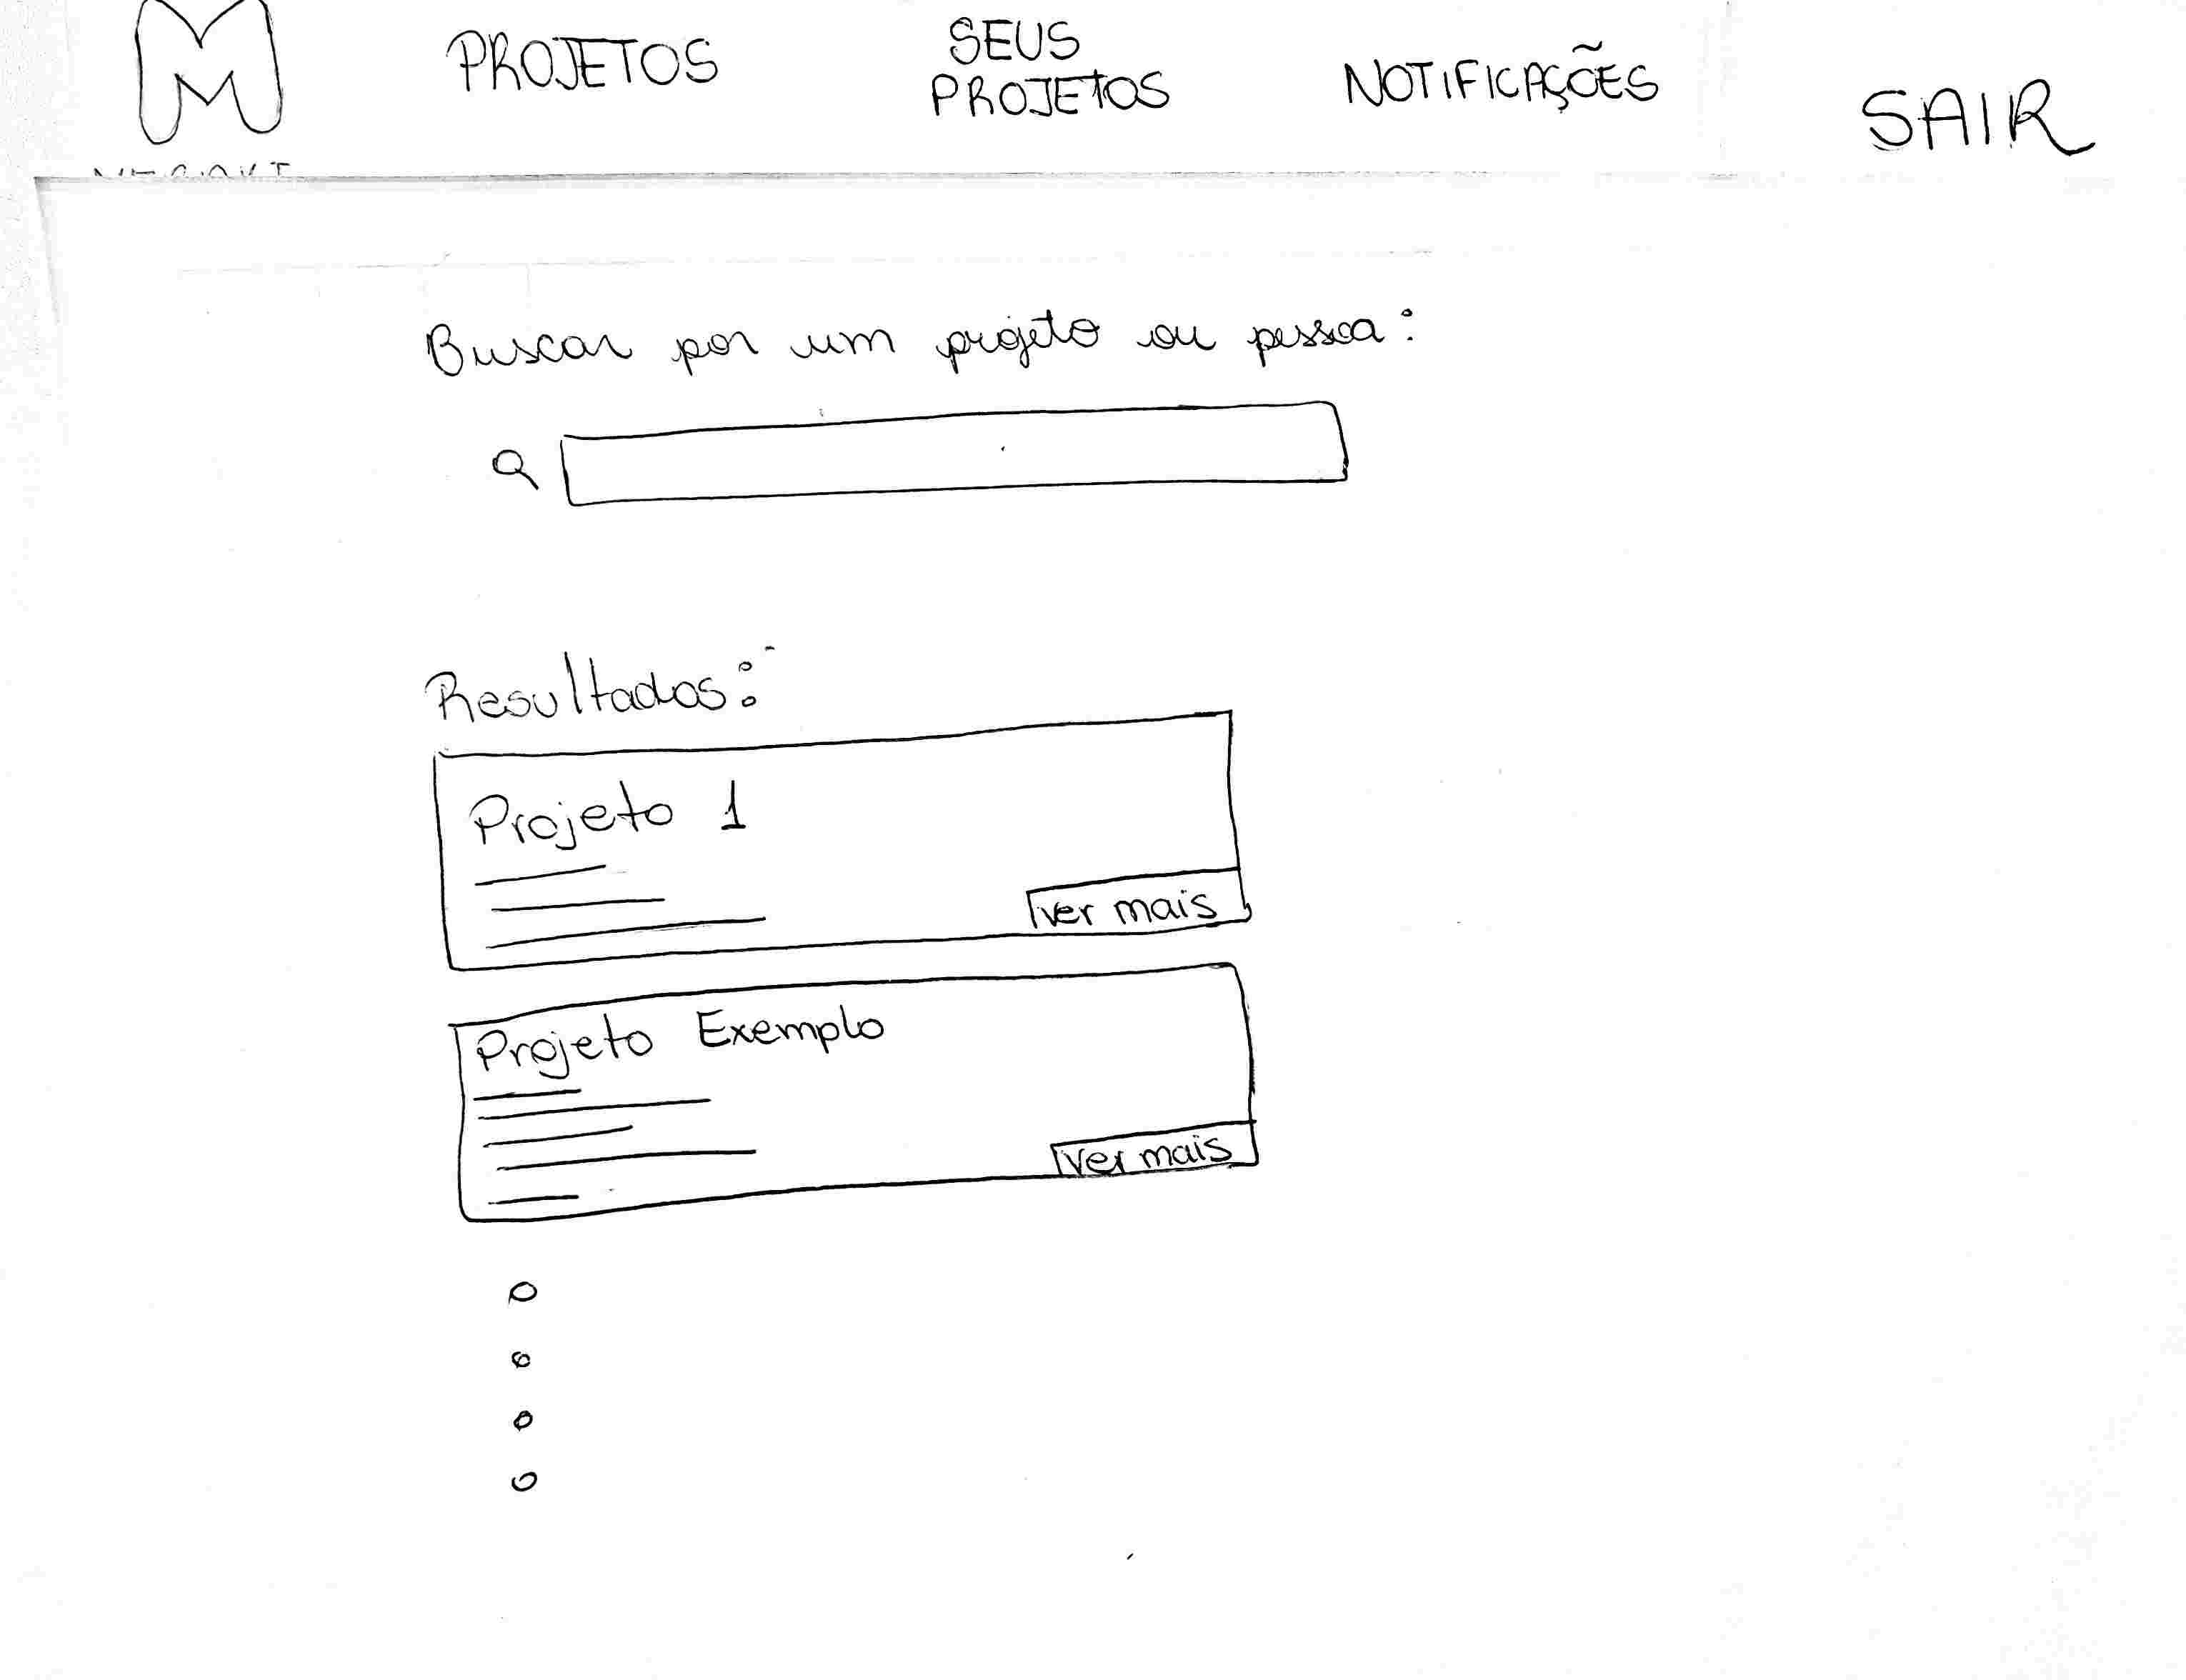 M
PROJETOS
SEUS
PROJETOS
NOTIFICAÇÕES
SAIR
Buscar por um projeto ou pessoa:
Resultados:
Projeto 1
ver mais
Projeto Exemplo
ver mais